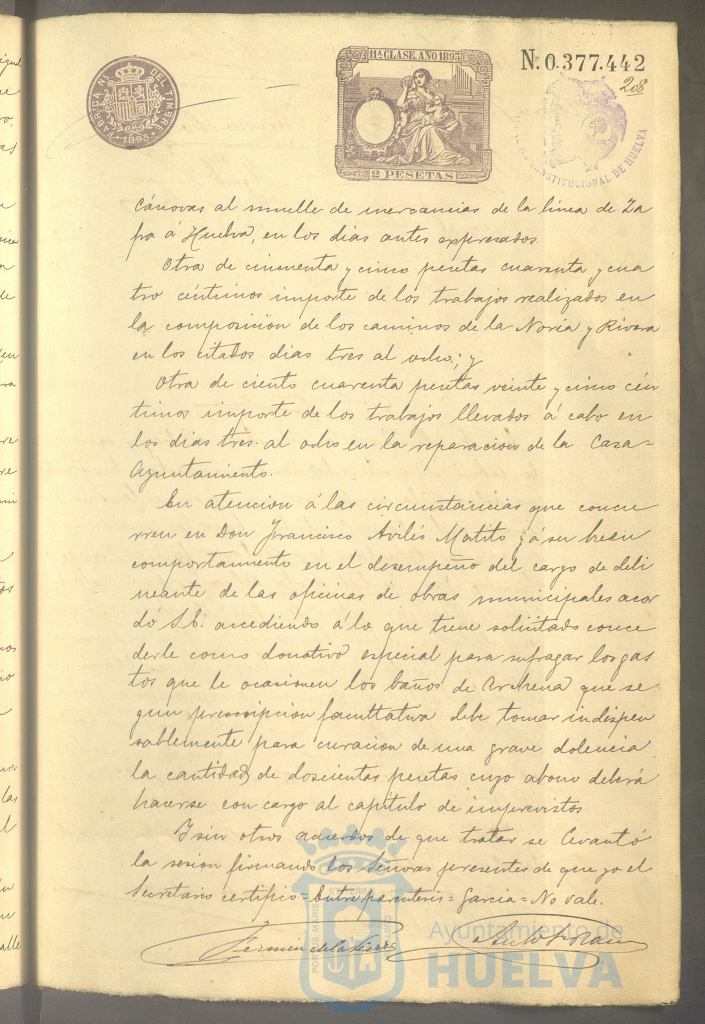 FABRICA NL DEL TIMBRE
1893
11ª CLASE. AÑO 1893
2 PESETAS
N. 0.377.442
208
CONSTITUCIONAL DE HUELVA
Cánovas al muelle de mercancias de la linea de Za
fra á Huelva, en los dias antes expresados.
Otra de cincuenta y cinco pesetas cuarenta y cua
tro céntimos importe de los trabajos realizados en
la composicion de los caminos de la Noria y Rivera
en los citados dias tres al ocho; y
Otra de ciento cuarenta pesetas veinte y cinco cén
timos importe de los trabajos llevados á cabo en
los dias tres al ocho en la reparacion de la Casa=
Ayuntamiento.
En atencion á las circunstancias que concu
rren en Don Francisco Avilés Matito y á su buen
comportamiento en el desempeño del cargo de deli
neante de las oficinas de obras municipales acor
dó S.E. accediendo á lo que tiene solicitado conce
derle como donativo especial para sufragar los gas
tos que le ocasionen los baños de Archena que se
gun prescripcion facultativa debe tomar indispen
sablemente para curacion de una grave dolencia
la cantidad de doscientas pesetas cuyo abono deberá
hacerse con cargo al capitulo de imprevistos
Y sin otros acuerdos de que tratar se levantó
la sesion firmando los Señores presentes de que yo el
Secretario certifico = Entre parentesis = Garcia = No vale.
Fermin de la Sierra
Ayuntamiento de
HUELVA
PORTUS MARIS ET TERRE CUSTODIA